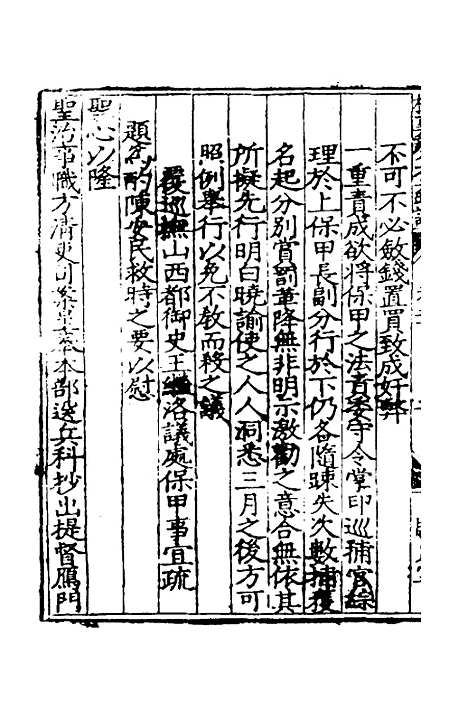 不可不必斂錢置買致成奸弊
一重責成欲將保甲之法責委守令掌印巡捕官綜
理於上保甲長副分行於下仍各隨踈失次數捕獲
名起分別賞罰革降無非明示激勸之意合無依其
所擬先行明白曉諭使之人人洞悉三月之後方可
照例舉行以免不敎而移之議
覆巡撫山西都御史王繼洛議處保甲事宜疏
題為酌陳安民救時之要以慰
聖心以隆
聖治事職方清吏司案呈奉本部送兵科抄出提督鴈門